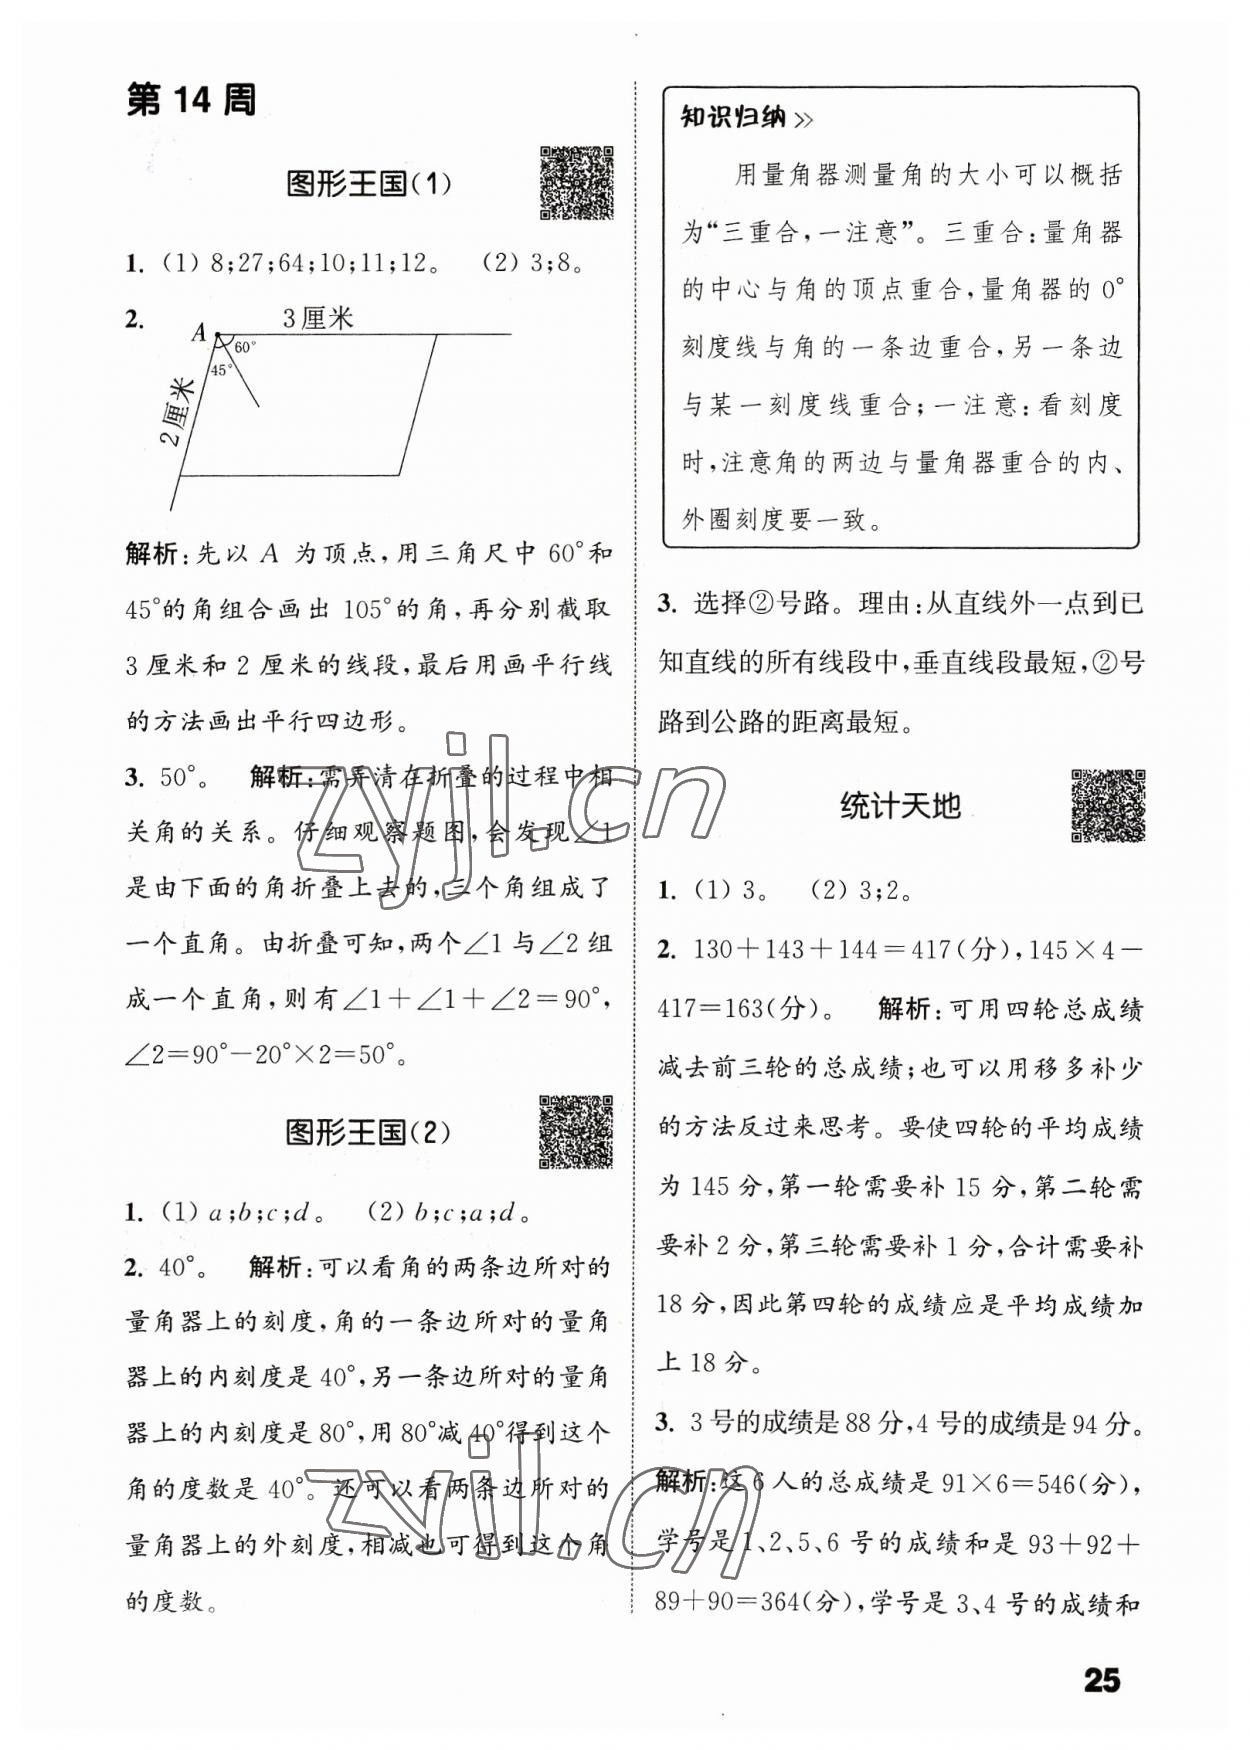 第14周
图形王国(1)
1. (1) 8;27;64;10;11;12。 (2) 3;8。
2.
A
3厘米
60°
45°
2厘米
解析:先以 A 为顶点,用三角尺中 60°和
45°的角组合画出 105°的角,再分别截取
3 厘米和 2 厘米的线段,最后用画平行线
的方法画出平行四边形。
3. 50°。 解析:需弄清在折叠的过程中相
关角的关系。仔细观察题图,会发现∠1
是由下面的角折叠上去的,三个角组成了
一个直角。由折叠可知,两个∠1与∠2组
成一个直角,则有∠1+∠1+∠2=90°,
∠2=90°-20°×2=50°。
图形王国(2)
1. (1) a;b;c;d。 (2) b;c;a;d。
2. 40°。 解析:可以看角的两条边所对的
量角器上的刻度,角的一条边所对的量角
器上的内刻度是 40°,另一条边所对的量角
器上的内刻度是 80°,用 80°减 40°得到这个
角的度数是 40°。还可以看两条边所对的
量角器上的外刻度,相减也可得到这个角
的度数。
知识归纳 >>
用量角器测量角的大小可以概括
为“三重合,一注意”。三重合:量角器
的中心与角的顶点重合,量角器的 0°
刻度线与角的一条边重合,另一条边
与某一刻度线重合;一注意:看刻度
时,注意角的两边与量角器重合的内、
外圈刻度要一致。
3. 选择②号路。理由:从直线外一点到已
知直线的所有线段中,垂直线段最短,②号
路到公路的距离最短。
统计天地
1. (1) 3。 (2) 3;2。
2. 130+143+144=417(分),145×4-
417=163(分)。 解析:可用四轮总成绩
减去前三轮的总成绩;也可以用移多补少
的方法反过来思考。要使四轮的平均成绩
为 145 分,第一轮需要补 15 分,第二轮需
要补 2 分,第三轮需要补 1 分,合计需要补
18 分,因此第四轮的成绩应是平均成绩加
上 18 分。
3. 3 号的成绩是 88 分,4 号的成绩是 94 分。
解析:这 6 人的总成绩是 91×6=546(分),
学号是 1、2、5、6 号的成绩和是 93+92+
89+90=364(分),学号是 3、4 号的成绩和
25
zyjl.cn
zyjl.cn